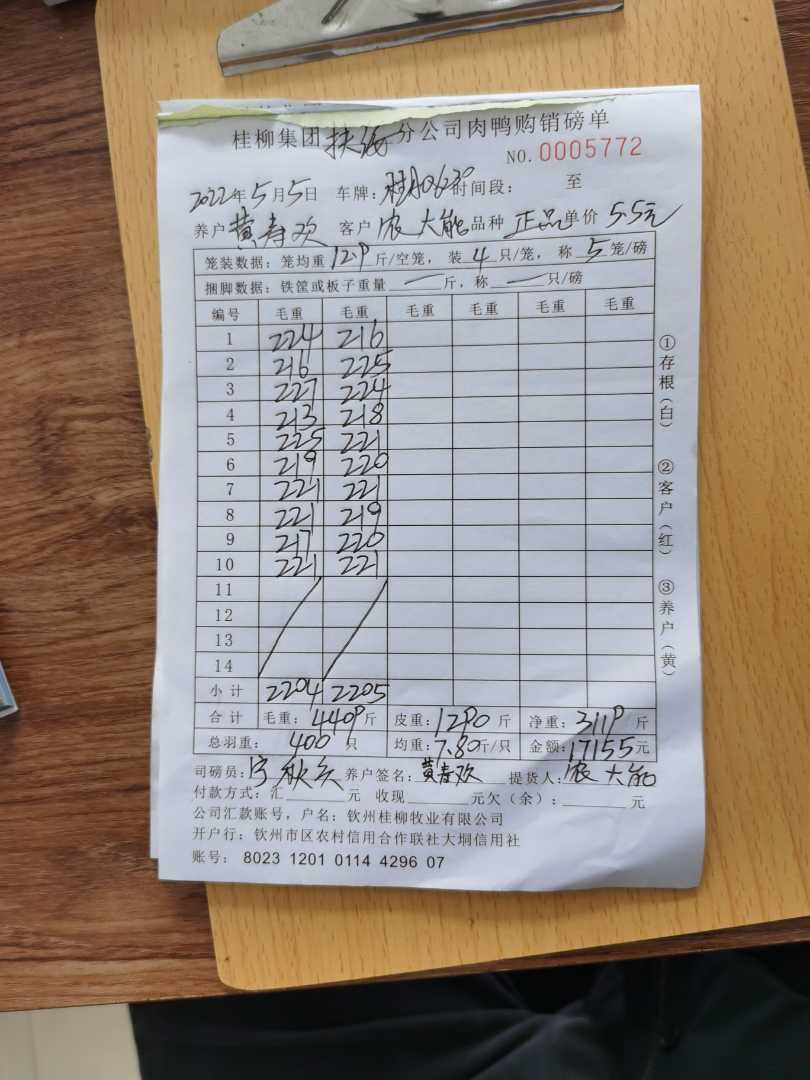 桂柳集团 分公司肉鸭购销磅单
NO.0005772
2022年5月5日 车牌: 时间段: 至
养户 黄春欢 客户 农大能 品种 正品 单价 5.5元
笼装数据: 笼均重 12.9 斤/空笼, 装 4 只/笼, 称 5 笼/磅
捆脚数据: 铁筐或板子重量 — 斤, 称 — 只/磅
编号 毛重 毛重 毛重 毛重 毛重 毛重
1 224 216
2 216 225
3 227 224
4 213 218
5 225 221
6 219 220
7 221 221
8 221 219
9 217 220
10 221 221
11
12
13
14
小计 2204 2205
合计 毛重: 4409斤 皮重: 1290 斤 净重: 3119 斤
总羽重: 400 只 均重: 7.80斤/只 金额: 17155元
司磅员: 养户签名: 黄春欢 提货人: 农大能
付款方式: 汇 元 收现 元欠(余): 元
公司汇款账号, 户名: 钦州桂柳牧业有限公司
开户行: 钦州市区农村信用合作联社大垌信用社
账号: 8023 1201 0114 4296 07
①存根(白) ②客户(红) ③养户(黄)